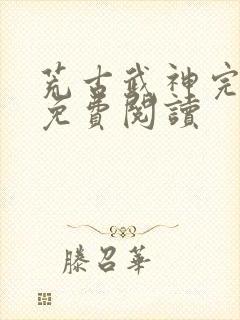 荒古武神完
免費閱讀
滕召華